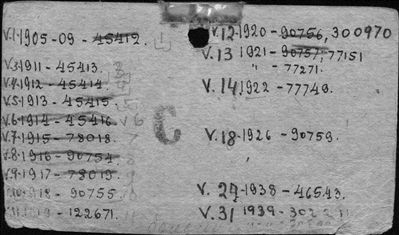 V.1-1905-09-45412.
V.3-1911-45413.
V.4-1912-45414.
V.5-1913-45415
V.6-1914-45416
V.7-1915-78018.
V.8-1916-90754
V.9-1917-78019
1918-90755
122671.
C
V.12-1920-90756, 300970
V.13 1921-90757, 77151
" - 77271.
V.14 1922-77749.
V.18-1926-90759.
V. 29-1938-46543.
V.31 1939-